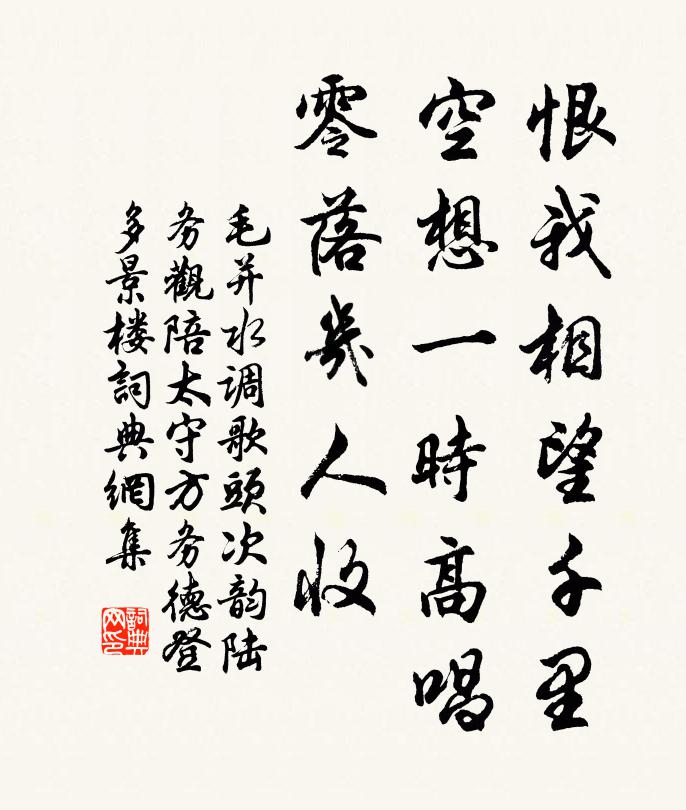 恨我相望千里
空想一時高唱
零落幾人收
毛并水调歌頭次韵陆
务觀陪太守方务德登
多景楼詞典網集
詞典
网印